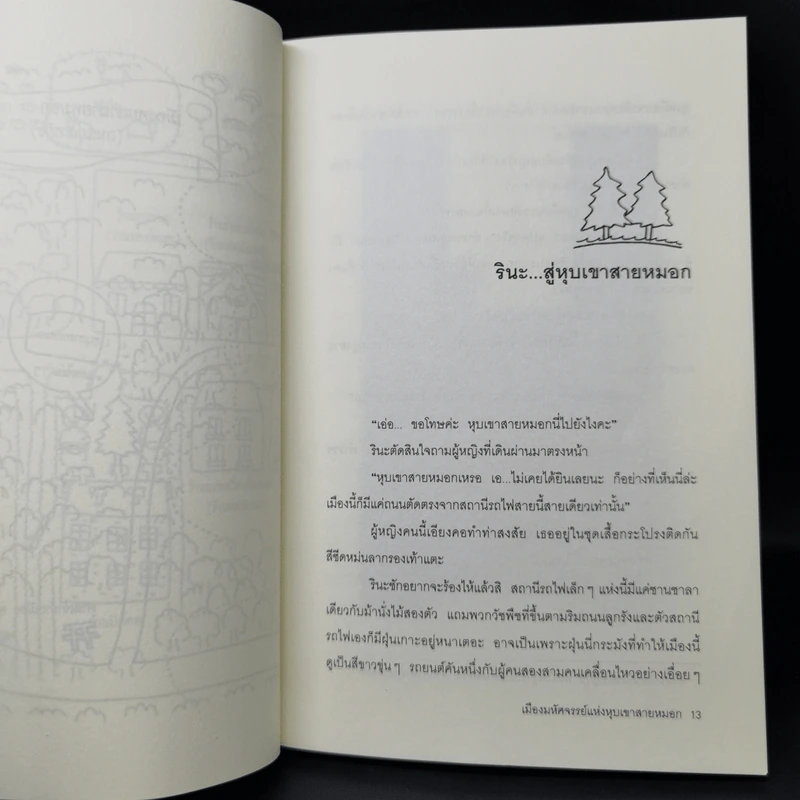 รินะ...สู่หุบเขาสายหมอก
“เอ่อ... ขอโทษค่ะ หุบเขาสายหมอกนี่ไปยังไงคะ”
รินะตัดสินใจถามผู้หญิงที่เดินผ่านมาตรงหน้า
“หุบเขาสายหมอกเหรอ เอ...ไม่เคยได้ยินเลยนะ ก็อย่างที่เห็นนี่ล่ะ
เมืองนี้ก็มีแค่ถนนตัดตรงจากสถานีรถไฟสายนี้สายเดียวเท่านั้น”
ผู้หญิงคนนี้เอียงคอทำท่าสงสัย เธออยู่ในชุดเสื้อกระโปรงติดกัน
สีซีดหม่นลากรองเท้าแตะ
รินะชักอยากจะร้องไห้แล้วสิ สถานีรถไฟเล็กๆ แห่งนี้มีแค่ชานชาลา
เดียวกับม้านั่งไม้สองตัว แถมพวกวัชพืชที่ขึ้นตามริมถนนลูกรังและตัวสถานี
รถไฟเองก็มีฝุ่นเกาะอยู่หนาเตอะ อาจเป็นเพราะฝุ่นนี่กระมังที่ทำให้เมืองนี้
ดูเป็นสีขาวขุ่นๆ รถยนต์คันหนึ่งกับผู้คนสองสามคนเคลื่อนไหวอย่างเอื่อยๆ
เมืองมหัศจรรย์แห่งหุบเขาสายหมอก 13